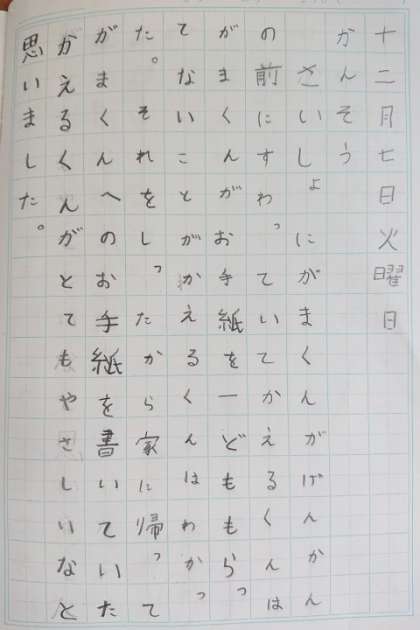 十二月七日火曜日
かんそう
さいしょにがまくんがげんかん
の前にすわっていてかえるくんは
がまくんがお手紙を一どももらっ
てないことがかえるくんはわかっ
た。それをしったから家に帰って
がまくんへのお手紙を書いていた
かえるくんがとてもやさしいなと
思いました。